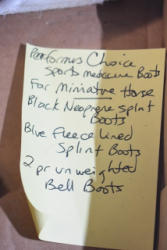 Performers Choice
sports medicine Boots
For Miniature Horse
Black Neoprene splint
Boots
Blue fleece lined
Splint Boots
2 pr unweighted
Bell Boots